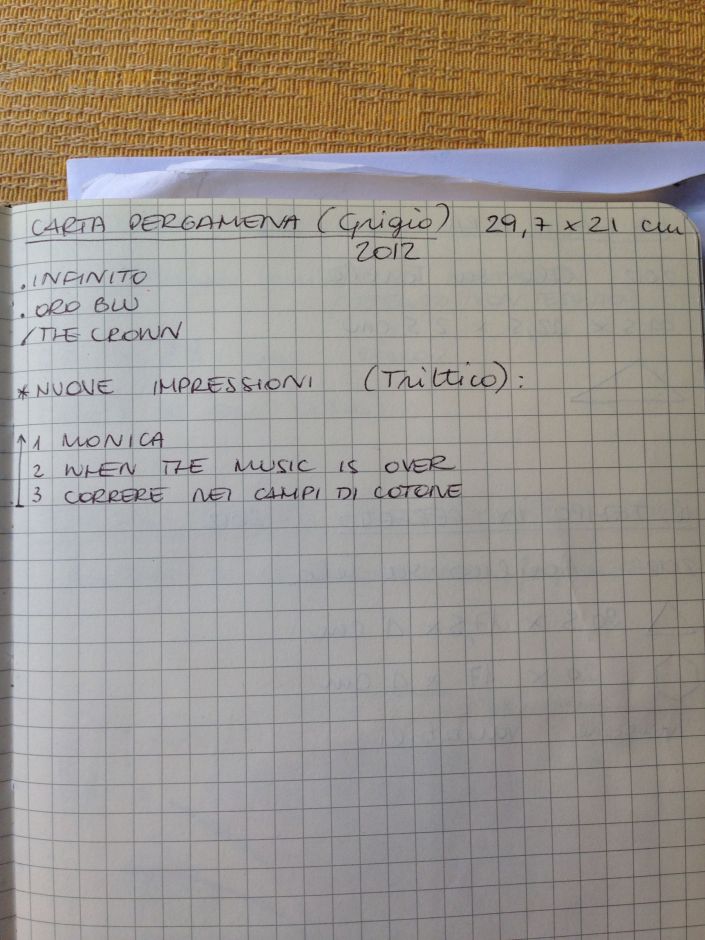 CARTA PERGAMENA (Grigio) 29,7 x 21 cm
2012
. INFINITO
. ORO BLU
/ THE CROWN
* NUOVE IMPRESSIONI (Trittico):
1 MONICA
2 WHEN THE MUSIC IS OVER
3 CORRERE NEI CAMPI DI COTONE